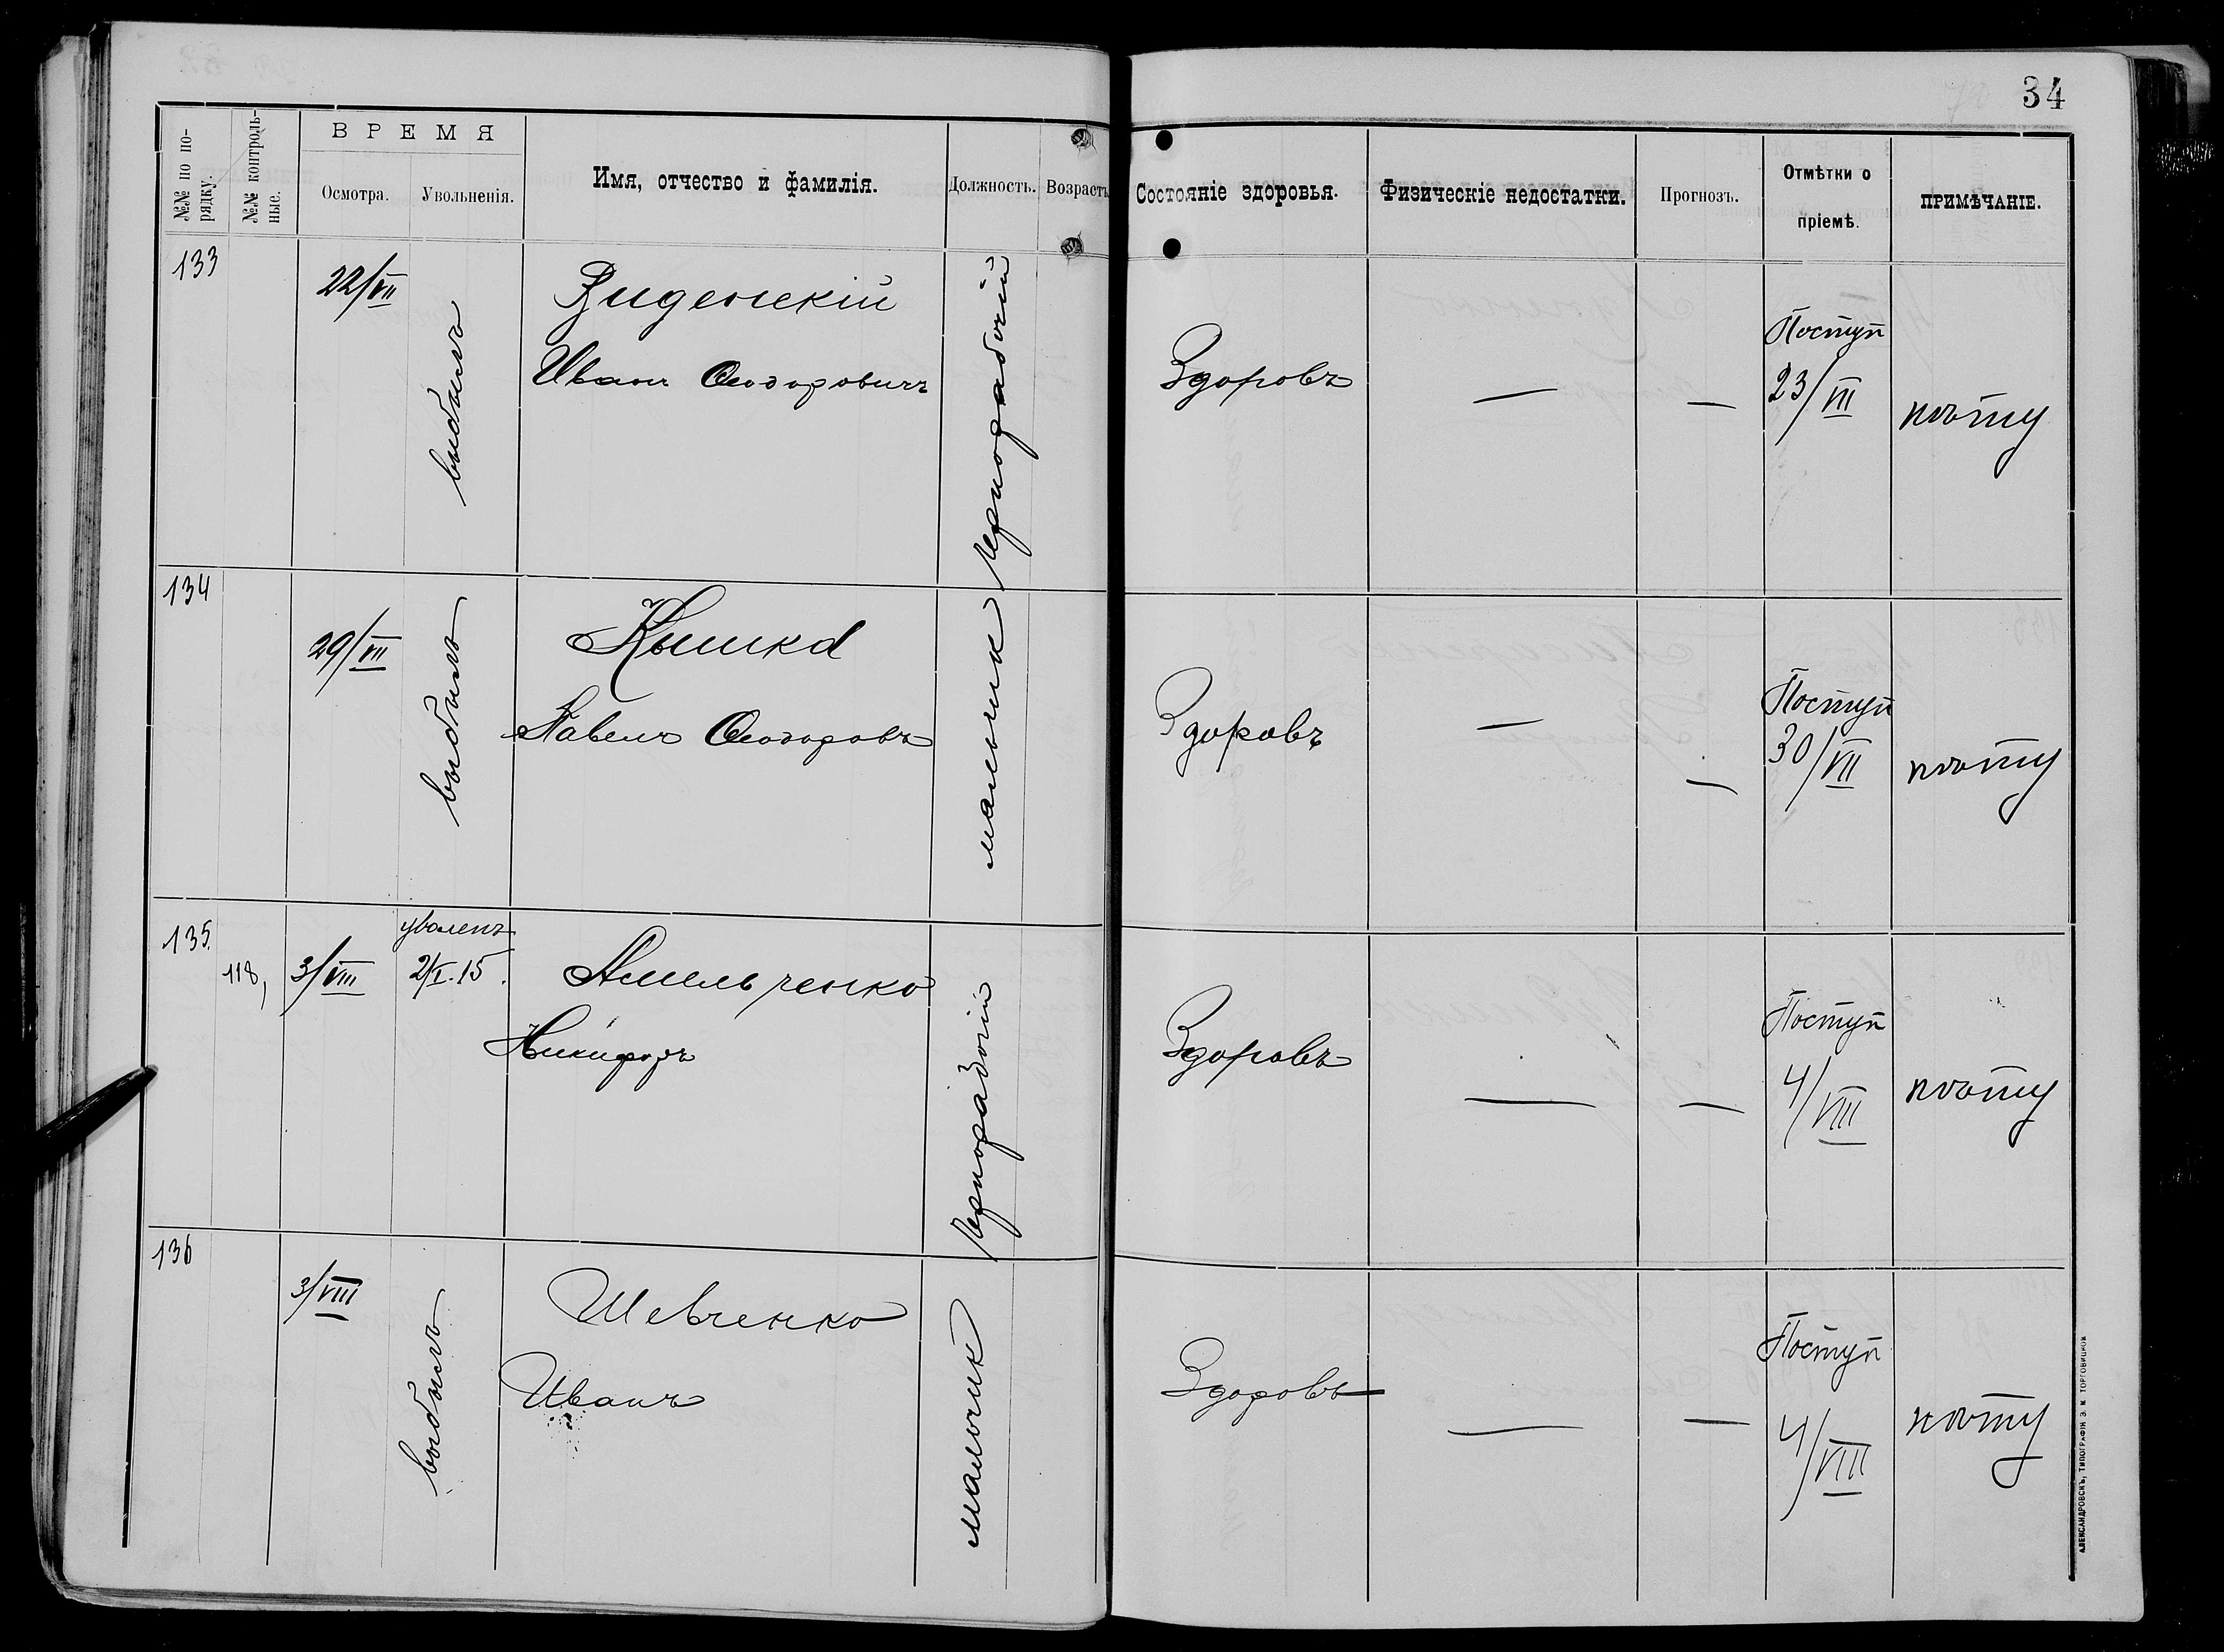 34
№№ по по-
рядку.
№№ контроль-
ные.
ВРЕМЯ
Осмотра.
Увольненія.
Имя, отчество и фамилія.
Должность.
Возрастъ
Состояніе здоровья.
Физическіе недостатки.
Прогнозъ.
Отмѣтки о
пріемѣ.
ПРИМѢЧАНІЕ.
133
22/VII
выбылъ
Иванъ Ѳеодоровичъ
Чернорабочій
Здоровъ
—
—
Поступ
23/VII
134
29/VII
выбылъ
Кышка
Павелъ Ѳеодоровъ
мальчик
Здоровъ
—
—
Поступ
30/VII
135.
118,
3/VIII
уволенъ
2/I.15.
Амельченко
Никифоръ
Чернорабочій
Здоровъ
—
—
Поступ
4/VIII
136
3/VIII
выбылъ
Шевченко
Иванъ
мальчик
Здоровъ
—
—
Поступ
4/VIII
АЛЕКСАНДРОВСКЪ, ТИПОГРАФІЯ Э. М. ТОРГОВИЦКОЙ